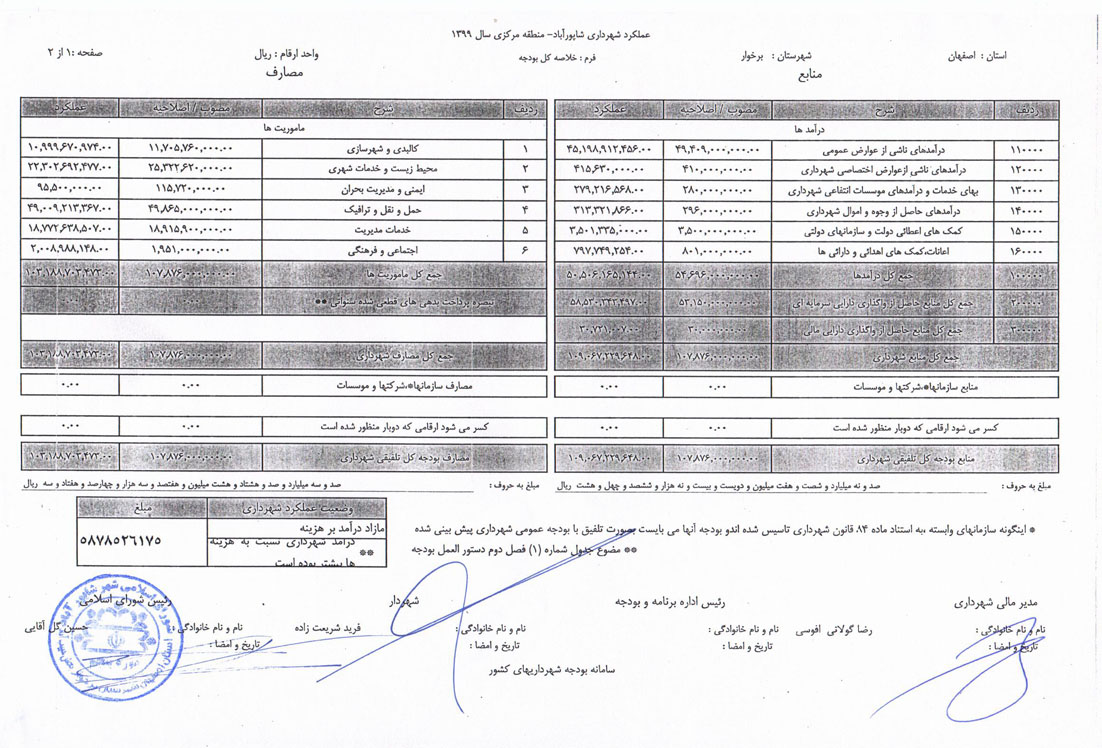 عملکرد شهرداری شاپورآباد- منطقه مرکزی سال ۱۳۹۹
استان : اصفهان شهرستان : برخوار فرم : خلاصه کل بودجه واحد ارقام : ریال صفحه :۱ از ۲
منابع
ردیف شرح مصوب / اصلاحیه عملکرد
درآمد ها
۱۱۰۰۰۰ درآمدهای ناشی از عوارض عمومی ۴۹,۴۰۹,۰۰۰,۰۰۰.۰۰ ۴۵,۱۹۸,۹۱۲,۴۵۶.۰۰
۱۲۰۰۰۰ درآمدهای ناشی ازعوارض اختصاصی شهرداری ۴۱۰,۰۰۰,۰۰۰.۰۰ ۴۱۵,۶۳۰,۰۰۰.۰۰
۱۳۰۰۰۰ بهای خدمات و درآمدهای موسسات انتفاعی شهرداری ۲۸۰,۰۰۰,۰۰۰.۰۰ ۲۷۹,۲۱۶,۵۶۸.۰۰
۱۴۰۰۰۰ درآمدهای حاصل از وجوه و اموال شهرداری ۲۹۶,۰۰۰,۰۰۰.۰۰ ۳۱۳,۳۲۱,۸۶۶.۰۰
۱۵۰۰۰۰ کمک های اعطائی دولت و سازمانهای دولتی ۳,۵۰۰,۰۰۰,۰۰۰.۰۰ ۳,۵۰۱,۳۳۵,۰۰۰.۰۰
۱۶۰۰۰۰ اعانات،کمک های اهدائی و دارائی ها ۸۰۱,۰۰۰,۰۰۰.۰۰ ۷۹۷,۷۴۹,۲۵۴.۰۰
۱۰۰۰۰۰ جمع کل درآمدها ۵۴,۶۹۶,۰۰۰,۰۰۰.۰۰ ۵۰,۵۰۶,۱۶۵,۱۴۴.۰۰
۲۰۰۰۰۰ جمع کل منابع حاصل از واگذاری دارایی سرمایه ای ۵۳,۱۵۰,۰۰۰,۰۰۰.۰۰
۳۰۰۰۰۰ جمع کل منابع حاصل از واگذاری دارایی مالی ۳۰,۰۰۰,۰۰۰.۰۰ ۳۰,۷۲۱,۰۰۷.۰۰
جمع کل منابع شهرداری ۱۰۷,۸۷۶,۰۰۰,۰۰۰.۰۰ ۱۰۹,۰۶۷,۲۲۹,۶۴۸.۰۰
منابع سازمانها*،شرکتها و موسسات ۰.۰۰ ۰.۰۰
کسر می شود ارقامی که دوبار منظور شده است ۰.۰۰ ۰.۰۰
منابع بودجه کل تلفیقی شهرداری ۱۰۷,۸۷۶,۰۰۰,۰۰۰.۰۰ ۱۰۹,۰۶۷,۲۲۹,۶۴۸.۰۰
مبلغ به حروف : صد و نه میلیارد و شصت و هفت میلیون و دویست و بیست و نه هزار و ششصد و چهل و هشت ریال
مصارف
ردیف شرح مصوب / اصلاحیه عملکرد
ماموریت ها
۱ کالبدی و شهرسازی ۱۱,۷۰۵,۷۶۰,۰۰۰.۰۰ ۱۰,۹۹۹,۶۷۰,۹۷۴.۰۰
۲ محیط زیست و خدمات شهری ۲۵,۳۲۲,۶۲۰,۰۰۰.۰۰ ۲۲,۳۰۲,۶۹۲,۴۷۷.۰۰
۳ ایمنی و مدیریت بحران ۱۱۵,۷۲۰,۰۰۰.۰۰ ۹۵,۵۰۰,۰۰۰.۰۰
۴ حمل و نقل و ترافیک ۴۹,۸۶۵,۰۰۰,۰۰۰.۰۰ ۴۹,۰۰۹,۲۱۳,۳۶۷.۰۰
۵ خدمات مدیریت ۱۸,۹۱۵,۹۰۰,۰۰۰.۰۰ ۱۸,۷۷۲,۶۳۸,۵۰۷.۰۰
۶ اجتماعی و فرهنگی ۱,۹۵۱,۰۰۰,۰۰۰.۰۰ ۲,۰۰۸,۹۸۸,۱۴۸.۰۰
جمع کل ماموریت ها ۱۰۷,۸۷۶,۰۰۰,۰۰۰.۰۰ ۱۰۳,۱۸۸,۷۰۳,۴۷۳.۰۰
تبصره پرداخت بدهی های قطعی شده سنواتی **
جمع کل مصارف شهرداری ۱۰۷,۸۷۶,۰۰۰,۰۰۰.۰۰ ۱۰۳,۱۸۸,۷۰۳,۴۷۳.۰۰
مصارف سازمانها*،شرکتها و موسسات ۰.۰۰ ۰.۰۰
کسر می شود ارقامی که دوبار منظور شده است ۰.۰۰ ۰.۰۰
مصارف بودجه کل تلفیقی شهرداری ۱۰۷,۸۷۶,۰۰۰,۰۰۰.۰۰ ۱۰۳,۱۸۸,۷۰۳,۴۷۳.۰۰
مبلغ به حروف : صد و سه میلیارد و صد و هشتاد و هشت میلیون و هفتصد و سه هزار و چهارصد و هفتاد و سه ریال
وضعیت عملکرد شهرداری مبلغ
مازاد درآمد بر هزینه
درآمد شهرداری نسبت به هزینه ها بیشتر بوده است ** ۵۸۷۸۵۲۶۱۷۵
* اینگونه سازمانهای وابسته ،به استناد ماده ۸۴ قانون شهرداری تاسیس شده اندو بودجه آنها می بایست بصورت تلفیق با بودجه عمومی شهرداری پیش بینی شده
** موضوع جدول شماره (۱) فصل دوم دستور العمل بودجه
مدیر مالی شهرداری رئیس اداره برنامه و بودجه شهردار رئیس شورای اسلامی
نام و نام خانوادگی : رضا گولانی افوسی نام و نام خانوادگی : نام و نام خانوادگی : فرید شریعت زاده نام و نام خانوادگی : حسین گل آقایی
تاریخ و امضا : تاریخ و امضا : تاریخ و امضا : تاریخ و امضا :
سامانه بودجه شهرداریهای کشور